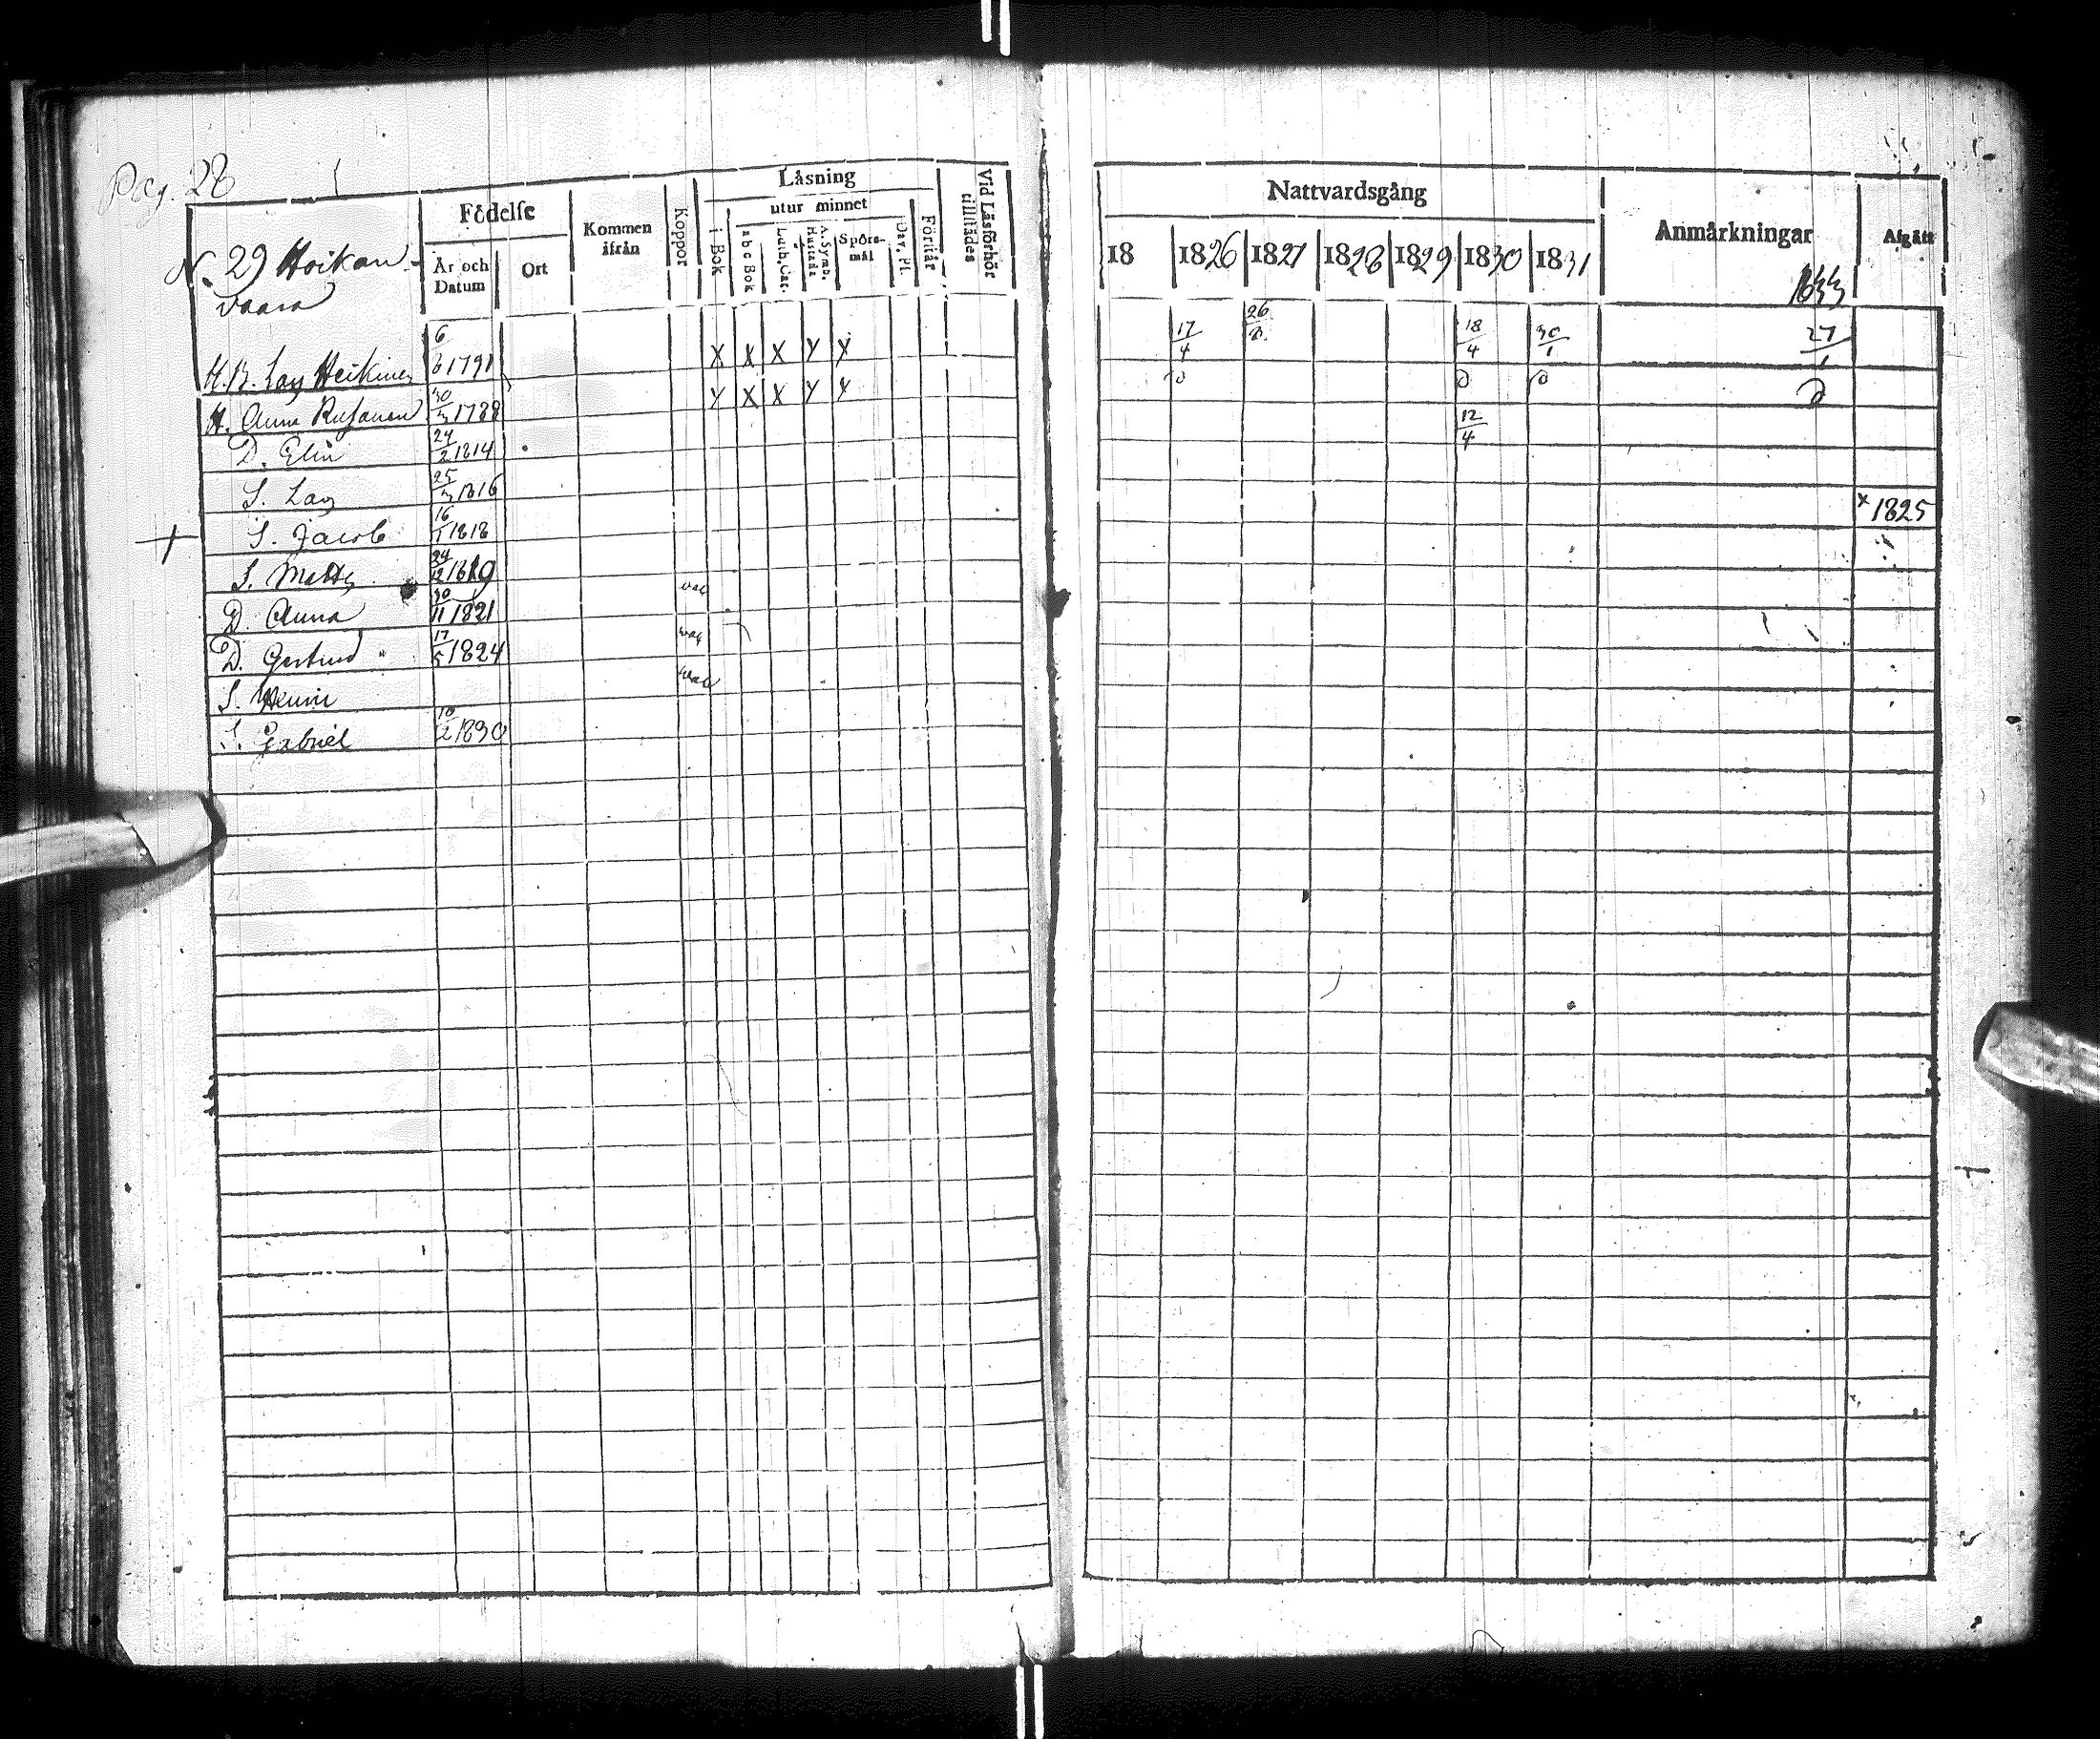 Pag. 28
N. 29 Hoikan-
vaara
Födelse
År och Datum
Ort
Kommen ifrån
Koppor
Läsning
i Bok
utur minnet
abc Bok
Luth. Cat.
A. Symb. Hustafla
Spörs-mål
Dav. Ps.
Förstår
Vid Läsförhör tillstädes
Nattvardsgång
18 1826 1827 1828 1829 1830 1831
Anmärkningar
1833
Afgått
H.B. Lars Heikinen 6/6 1791 X X X Y Y 17/4 26/8 18/4 30/1 27/1
H. Anna 30/3 1788 Y X X Y Y D D D D
D. Elin 24/2 1814 12/4
S. Lars 25/3 1816
+ S. Jacob 16/1 1818 x 1825
S. Matts 24/12 1819
D. Anna 30/11 1821 vac
D. Gertrud 17/5 1824 vac
S. Henric vac
S. Gabriel 10/2 1830